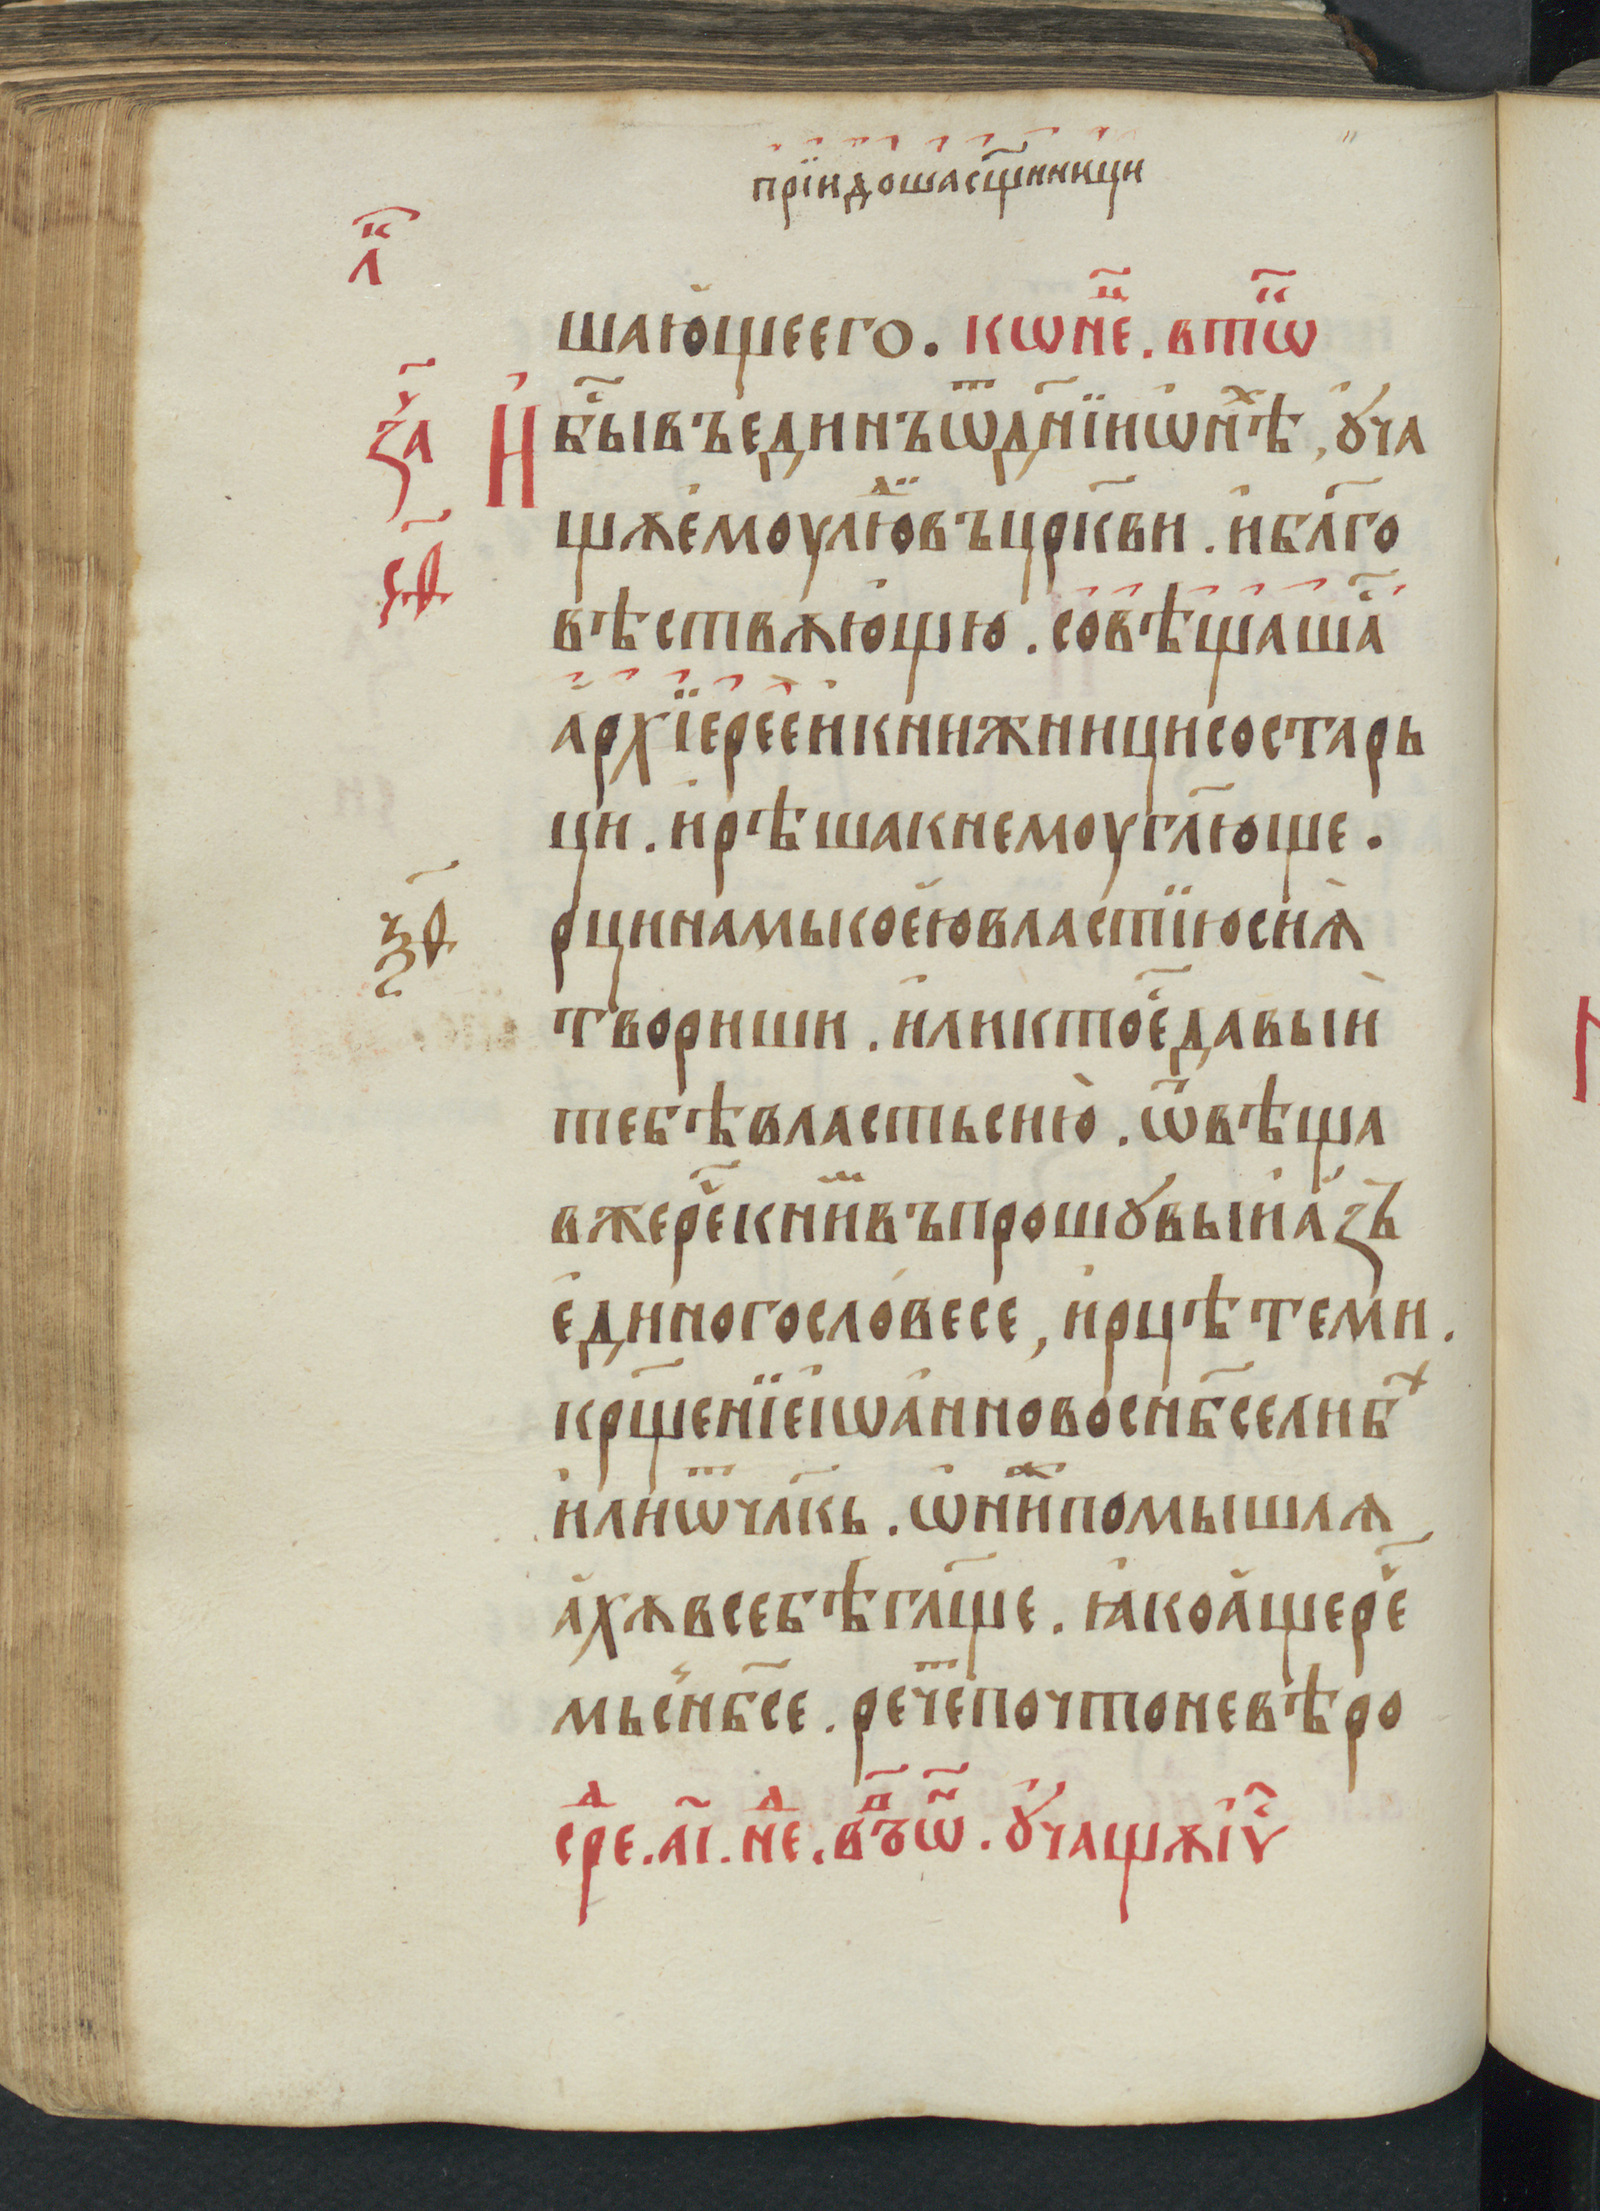 прїидошасщ҃нници
л҃к
шаю̑щеего. кѡн҃е. вт҃ѡ
ч҃а
И̑ бы҃въединъѿдн҃їиѡнѣⷯ, ᲂу̑ча
щѫе̑моулю҃ⷣвъцр҃кви. и̑бл҃го
вѣствѫю̑щю. со̑вѣщаша̑
а̑рхїереѐи̑книжницисостарь
ци. и̑рѣшакнемоугл҃юще.
рцинамькое̑ювластїюсиѧ̀
твориши. и̑ликтое҃давыи̑
тебѣвластьсию̀. ѿвѣща
вжере҃книⷨвъпрошꙋвыи̑а̑зъ
е̑диногослѡ́весе, и̑рцѣтеми.
крщ҃енїеі̑ѡа̑нновосиб҃селибⷯ
и̑лиѿчл҃кь. ѡ̑ниⷤпомышлѧ
а̑хѫвсебѣгл҃ще. ꙗ̑коа̑щере҃
мьсиб҃се. речеⷮпочтоневѣро
среⷣ. а҃і. неⷣ. въⷫѿ. ᲂу̑чащѫі̑ѵ҃